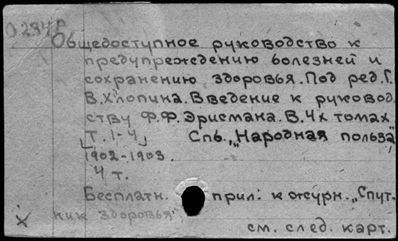 Общедоступное руководство к
предупреждению болезней и
сохранению здоровья. Под ред. Г.
В. Хлопина. Введение к руковод
ству Ф.Ф. Эрисмана. В 4х томах
Т. 1-4 Спб., „Народная польза"
1902-1903.
4 т.
Бесплатн. прил. к журн. „Спут-
ник здоровья"
см. след. карт.